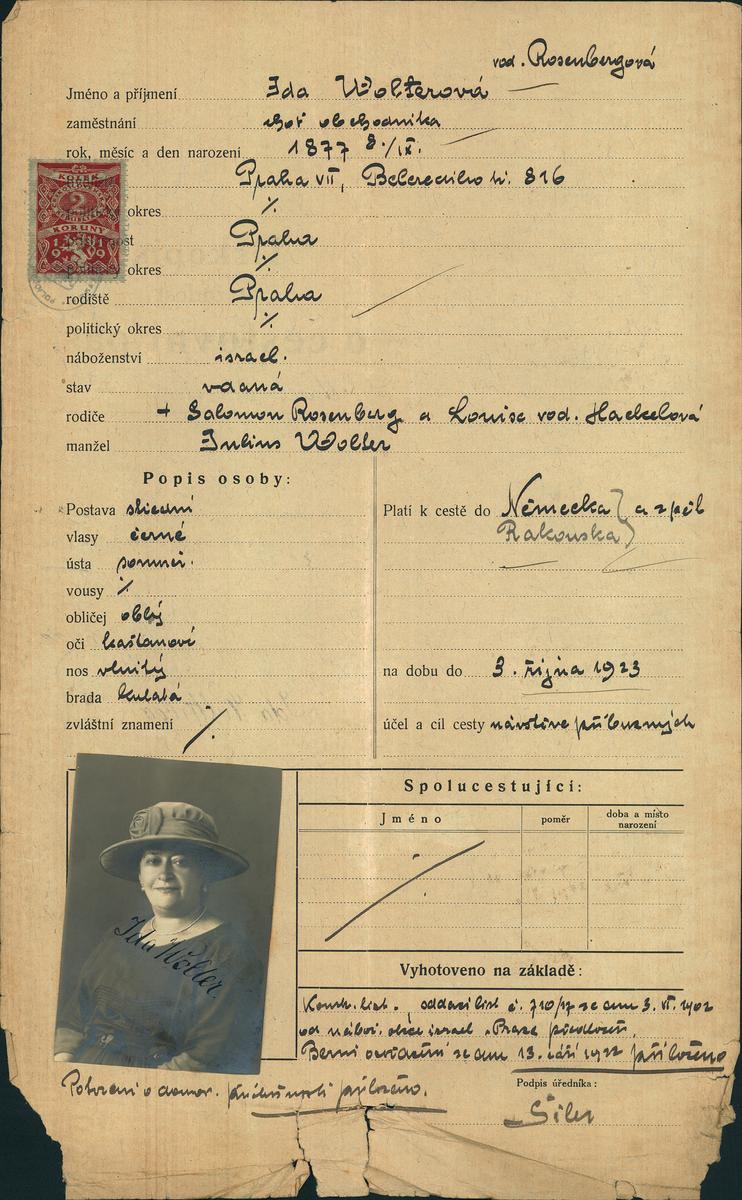 vod. Rosenbergová
Jméno a příjmení Ida Wolterová
zaměstnání choť obchodníka
rok, měsíc a den narození 1877 8./IX.
Praha VII, Belcrediho tř. 816
KOLEK
2
KORUNY
1919
okres ⁒
Praha
okres ⁒
rodiště Praha
politický okres ⁒
náboženství israel.
stav vdaná
rodiče + Salomon Rosenberg a Louise vod. Hackelová
manžel Julius Wolter
Popis osoby:
Postava střední
vlasy černé
ústa souměr.
vousy ⁒
obličej oblý
oči kaštanové
nos
brada kulatá
zvláštní znamení ⁒
Platí k cestě do Německa a zpět
Rakouska
na dobu do 3. října 1923
účel a cíl cesty návštěva příbuzných
Spolucestující:
Jméno poměr doba a místo narození
Ida Wolter.
Vyhotoveno na základě:
oddací list č. 710/17 ze dne 3. VI. 1902
od nábož. obce israel. v Praze předložen.
Berní osvědčení ze dne 13. září 1922 přiloženo
Potvrzení o domov. příslušnosti přiloženo.
Podpis úředníka: